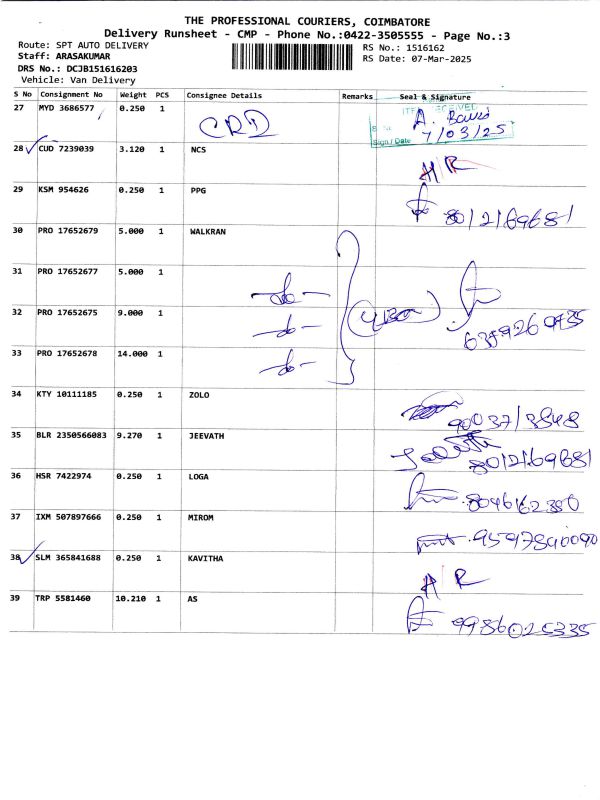 THE PROFESSIONAL COURIERS, COIMBATORE
Delivery Runsheet - CMP - Phone No.:0422-3505555 - Page No.:3
Route: SPT AUTO DELIVERY
RS No.: 1516162
Staff: ARASAKUMAR
RS Date: 07-Mar-2025
DRS No.: DCJB151616203
Vehicle: Van Delivery
S No Consignment No Weight PCS Consignee Details Remarks Seal & Signature
27 MYD 3686577 0.250 1 CRD
Sign / Date 7/03/25
28 CUD 7239039 3.120 1 NCS H/R
29 KSM 954626 0.250 1 PPG 8012169681
30 PRO 17652679 5.000 1 WALKRAN
31 PRO 17652677 5.000 1 -do-
32 PRO 17652675 9.000 1 -do-
33 PRO 17652678 14.000 1 -do-
34 KTY 10111185 0.250 1 ZOLO 9003713848
35 BLR 2350566083 9.270 1 JEEVATH 8012169681
36 HSR 7422974 0.250 1 LOGA 8046162350
37 IXM 507897666 0.250 1 MIROM
38 SLM 365841688 0.250 1 KAVITHA H/R
39 TRP 5581460 10.210 1 AS 9986025335